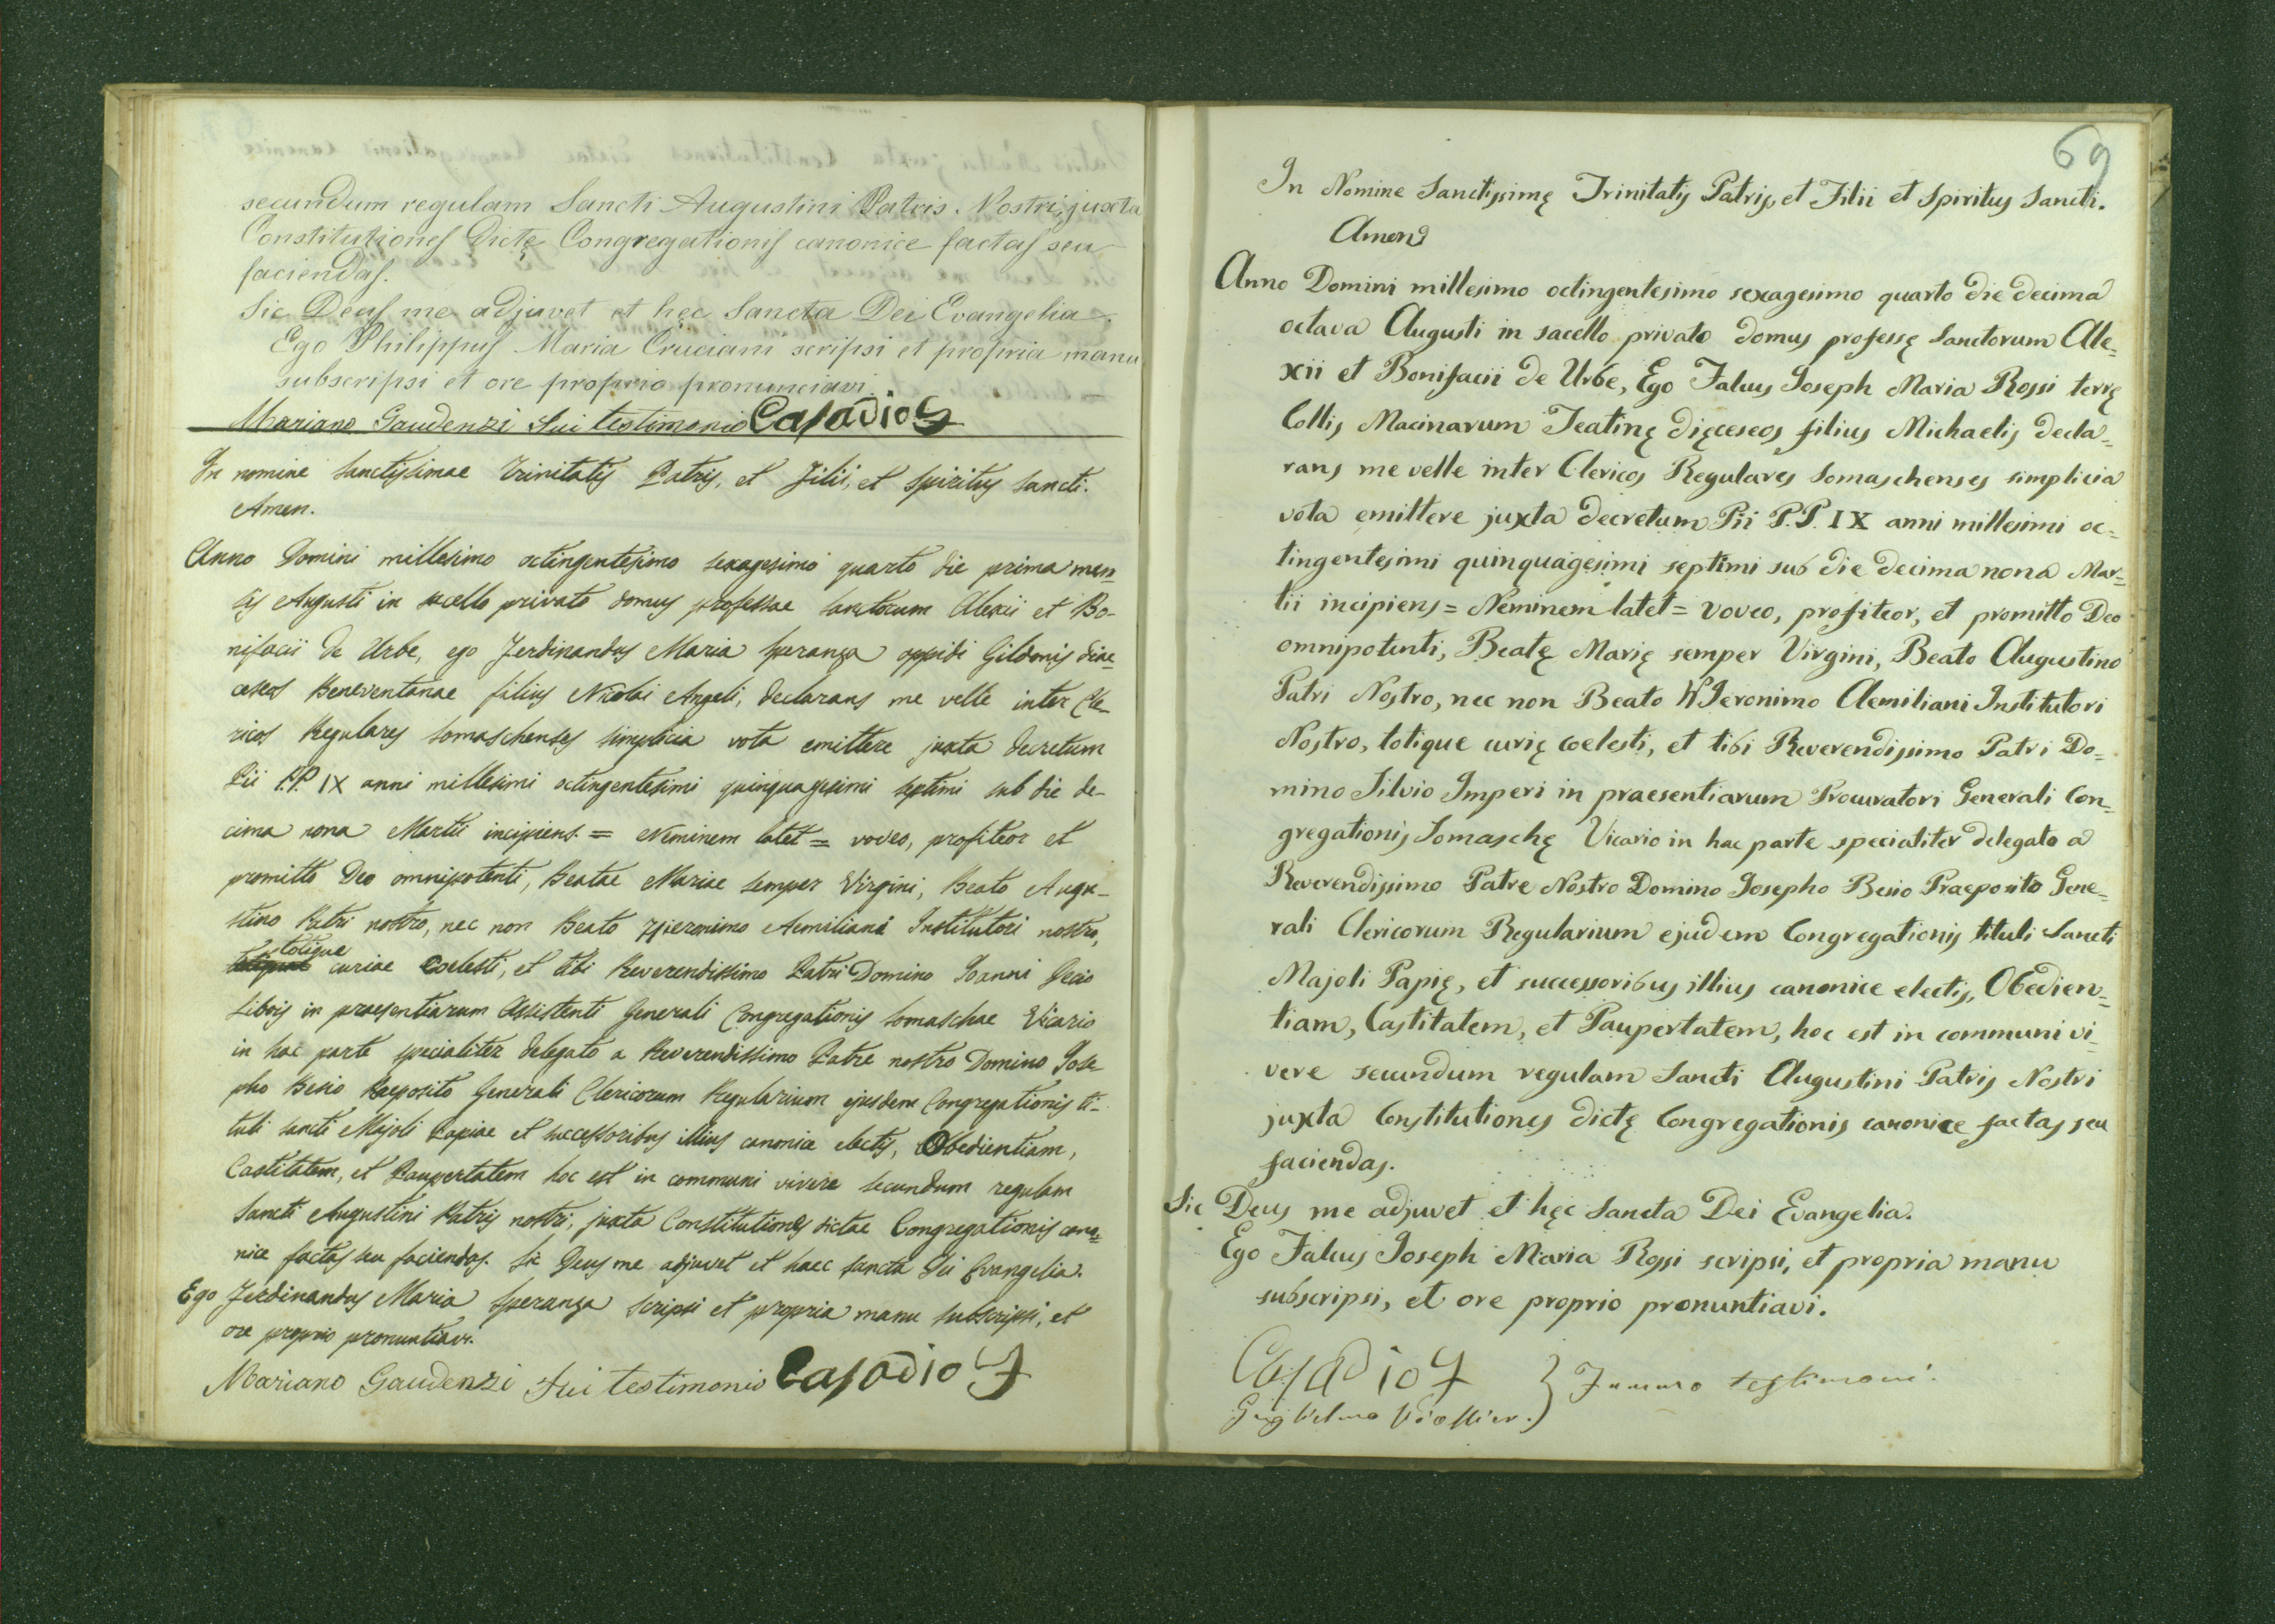 secundum regulam Sancti Augustini Patris Nostri, juxta
Constitutiones dictę Congregationis canonice factas seu
faciendas.
Sic Deus me adjuvet et hęc Sancta Dei Evangelia.
Ego Philippus Maria Cruciani scripsi et propria manu
subscripsi et ore proprio pronunciavi.
Mariano Gaudenzi fui testimonio Casadio G
In nomine Sanctissimae Trinitatis Patris, et Filii, et Spiritus Sancti.
Amen.
Anno Domini millesimo octingentesimo sexagesimo quarto die prima men=
sis Augusti in sacello privato domus professae Sanctorum Alexii et Bo-
nifacii de Urbe, ego Ferdinandus Maria Speranza oppidi Gildonis diae=
ceseos Beneventanae filius Nicolai Angeli, declarans me velle inter Cle-
ricos Regulares Somaschenses simplicia vota emittere juxta decretum
Pii P.P. IX anni millesimi octingentesimi quinquagesimi septimi sub die de-
cima nona Martii incipiens. = Neminem latet = voveo, profiteor et
promitto Deo omnipotenti, Beatae Mariae semper Virgini, Beato Augu-
stino Patri nostro, nec non Beato Hieronimo Aemiliani Institutori nostro,
totique curiae coelesti, et tibi Reverendissimo Patri Domino Joanni Decio
Libois in praesentiarum Assistenti Generali Congregationis Somaschae Vicario
in hac parte specialiter delegato a Reverendissimo Patre nostro Domino Jose-
pho Besio Praeposito Generali Clericorum Regularium ejusdem Congregationis ti-
tuli Sancti Majoli Papiae et successoribus illius canonice electis, Obedientiam,
Castitatem, et Paupertatem hoc est in communi vivere secundum regulam
Sancti Augustini Patris nostri, juxta Constitutiones dictae Congregationis cano=
nice factas seu faciendas. Sic Deus me adjuvet et haec Sancta Dei Evangelia.
Ego Ferdinandus Maria Speranza scripsi et propria manu subscripsi, et
ore proprio pronuntiavi.
Mariano Gaudenzi fui testimonio Casadio G
69
In Nomine Sanctissimę Trinitatis Patris, et Filii et Spiritus Sancti.
Amen
Anno Domini millesimo octingentesimo sexagesimo quarto die decima
octava Augusti in sacello privato domus professę Sanctorum Ale=
xii et Bonifacii de Urbe, Ego Falcus Joseph Maria Rossi terrę
Collis Macinarum Teatinę dięceseos filius Michaelis decla=
rans me velle inter Clericos Regulares Somaschenses simplicia
vota emittere juxta decretum Pii P.P. IX anni millesimi oc=
tingentesimi quinquagesimi septimi sub die decima nona Mar=
tii incipiens = Neminem latet = voveo, profiteor, et promitto Deo
omnipotenti, Beatę Marię semper Virgini, Beato Augustino
Patri Nostro, nec non Beato Hieronimo Aemiliani Institutori
Nostro, totique curię coelesti, et tibi Reverendissimo Patri Do=
mino Silvio Imperi in praesentiarum Procuratori Generali Con=
gregationis Somaschę Vicario in hac parte specialiter delegato a
Reverendissimo Patre Nostro Domino Josepho Besio Praeposito Gene=
rali Clericorum Regularium ejusdem Congregationis tituli Sancti
Majoli Papię, et successoribus illius canonice electis, Obedien=
tiam, Castitatem, et Paupertatem, hoc est in communi vi=
vere secundum regulam Sancti Augustini Patris Nostri
juxta Constitutiones dictę Congregationis canonice factas seu
faciendas.
Sic Deus me adjuvet et hęc Sancta Dei Evangelia.
Ego Falcus Joseph Maria Rossi scripsi, et propria manu
subscripsi, et ore proprio pronuntiavi.
Casadio G } Fummo testimoni.
Guglielmo